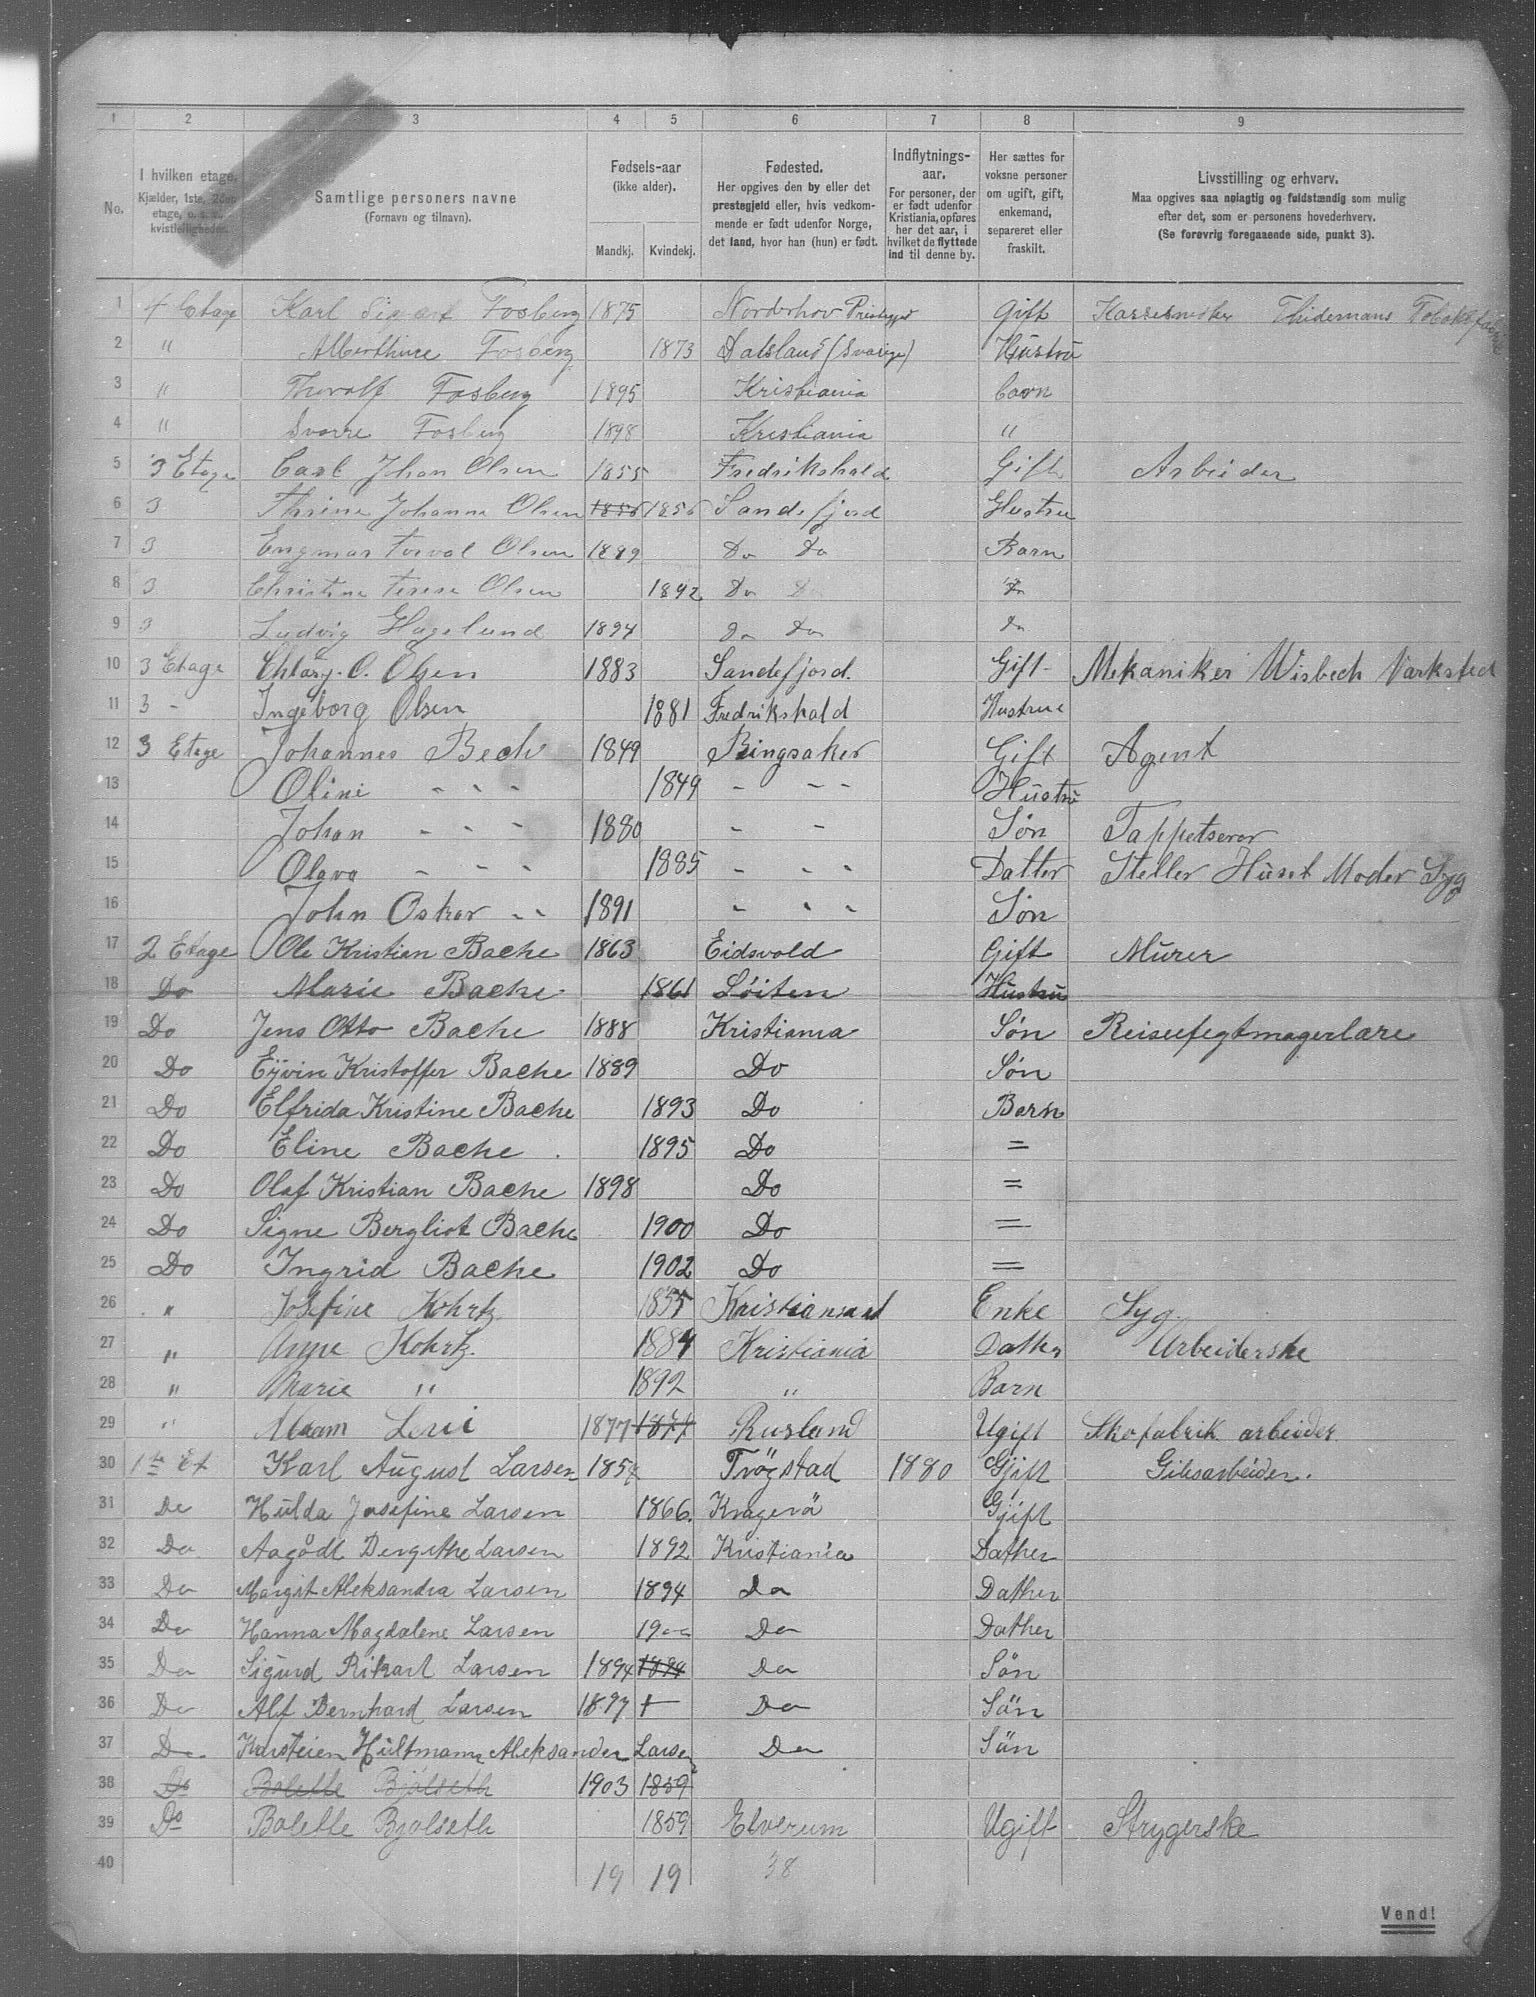 1 2 3 4 5 6 7 8 9
No.
I hvilken etage.
Kjælder, 1ste, 2den
etage, o. s. v.
kvistleiligheder.
Samtlige personers navne
(Fornavn og tilnavn).
Fødsels-aar
(ikke alder).
Mandkj. Kvindekj.
Fødested.
Her opgives den by eller det
prestegjeld eller, hvis vedkom-
mende er født udenfor Norge,
det land, hvor han (hun) er født.
Indflytnings-
aar.
For personer, der
er født udenfor
Kristiania, opføres
her det aar, i
hvilket de flyttede
ind til denne by.
Her sættes for
voksne personer
om ugift, gift,
enkemand,
separeret eller
fraskilt.
Livsstilling og erhverv.
Maa opgives saa nøiagtig og fuldstændig som mulig
efter det, som er personens hovederhverv.
(Se forøvrig foregaaende side, punkt 3).
1 4 Etage Karl Sigvart Fosberg 1875 Norderhov Gift Thidemans
2 " Alberthine Fosberg 1873 Dalsland (Sverige) Hustru
3 " Thorolf Fosberg 1895 Kristiania barn
4 " Svorre Fosberg 1898 Kristiania "
5 3 Etage Carl Jhan Olsen 1855 Fredrikshald Gift Arbeider
6 3 Thrine Johanne Olsen 1856 1856 Sandefjord Hustru
7 3 Engmar Torval Olsen 1889 Do Do Barn
8 3 Christine Terese Olsen 1892 Do Do Do
9 3 Ludvig Hagelund 1894 Do Do Do
10 3 Etage O. Olsen 1883 Sandefjord. Gift- Mekaniker Wisbech Værksted
11 3 - Ingeborg Olsen 1881 Fredrikshald Hustrue
12 3 Etage Johannes Bech 1849 Ringsaker Gift Agent
13 Oline - - - 1849 - - - Hustru
14 Johan - - - 1880 - - Søn Tappetserer
15 Olava - - - 1885 - - - Datter Steller Huset Moder Syg
16 John Oskar - - 1891 - - - Søn
17 2 Etage Ole Kristian Bache 1863 Eidsvold Gift Murer
18 Do Marie Bache 1861 Løiten Hustru
19 Do Jens Otto Bache 1888 Kristiania Søn Reiseefegtmagerlære
20 Do Eivin Kristoffer Bache 1889 Do Søn
21 Do Elfrida Kristine Bache 1893 Do Barn
22 Do Eline Bache 1895 Do =
23 Do Olaf Kristian Bache 1898 Do =
24 Do Signe Bergliot Bache 1900 Do =
25 Do Ingrid Bache 1902 Do =
26 " Josefine Kohrtz 1855 Kristiansand Enke Syg.
27 " Kohrtz. 1884 Kristiania Dather Arbeiderske
28 " Marie " 1892 " Barn
29 " Levi 1877 Rusland Ugift Skofabrik arbeider.
30 1te Et Karl August Larsen Trögstad 1880 Gift
31 Do Hulda Josefine Larsen 1866. Kragerö Gjift
32 Do Aagödt Bergithe Larsen 1892 Kristiania Dather
33 Do Margit Aleksandra Larsen 1894 Do Dather
34 Do Hanna Magdalene Larsen 1900 Do Dather
35 Do Sigurd Rikart Larsen 1894 1894 Do Sön
36 Do Alf Bernhard Larsen 1897 Do Sön
37 Do Karsteien Hultmann Aleksander Larsen Do Sön
38 Do Bolette Bjølseth 1903 1859
39 Do Bolette Bjølseth 1859 Elverum Ugift Strygerske
40 19 19 38
Vend!